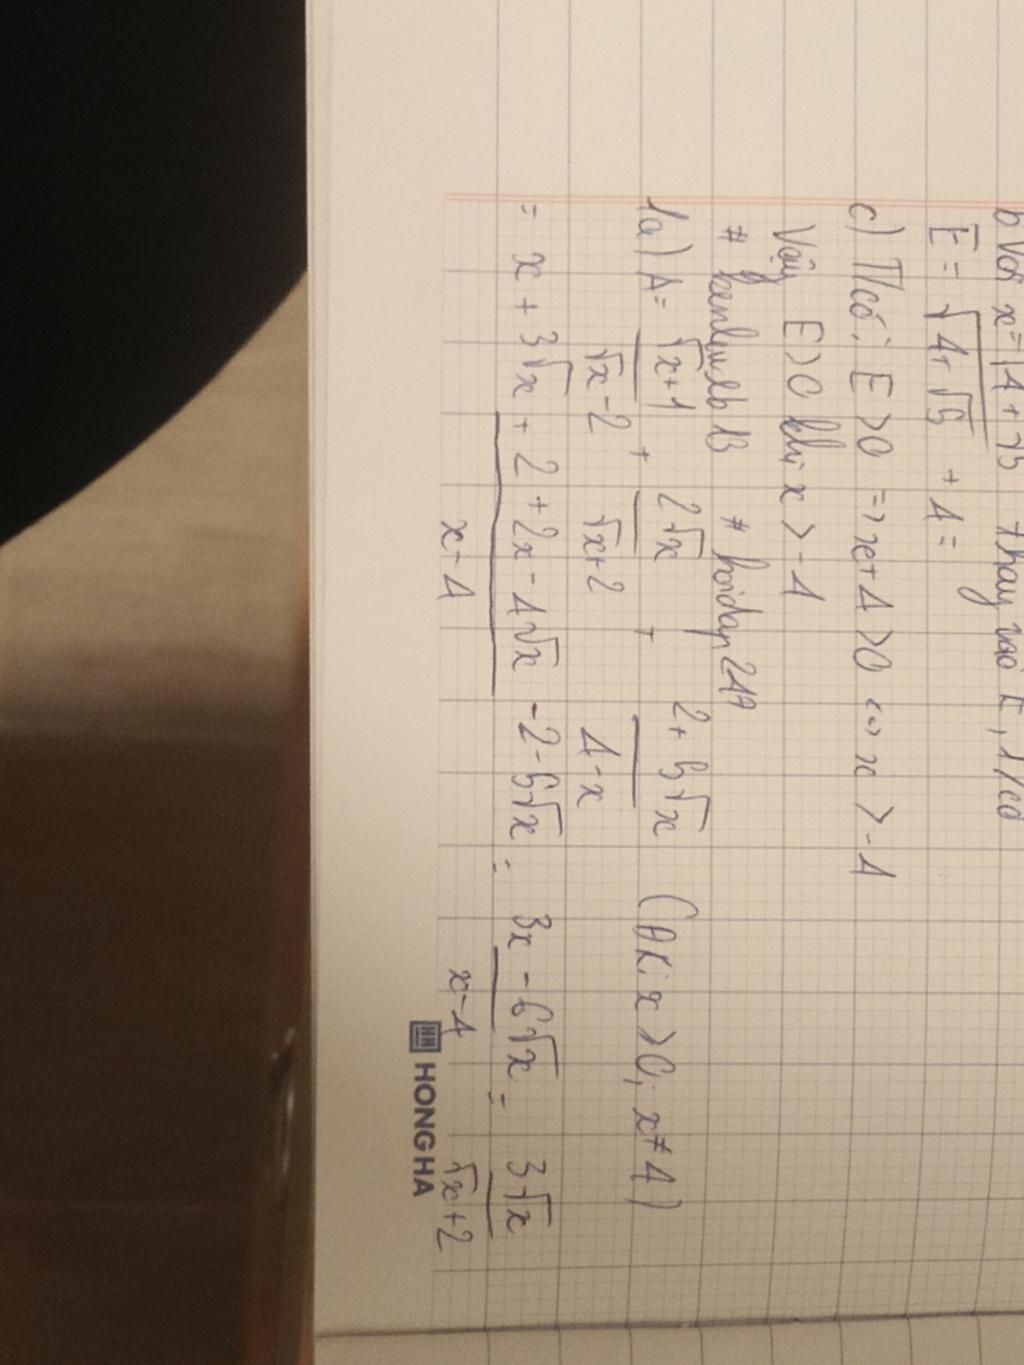 b) Với x = 14 + √5 thay vào E, ta có
E = √(4+√5) + 4 =
c) Ta có: E > 0 => x + 4 > 0 <=> x > -4
Vậy E > 0 khi x > -4
1a) A = (√x+1)/(√x-2) + (2√x)/(√x+2) + (2+5√x)/(4-x) (ĐK: x > 0; x ≠ 4)
= (x + 3√x + 2 + 2x - 4√x - 2 - 5√x)/(x-4) = (3x - 6√x)/(x-4) = (3√x)/(√x+2)
HONG HA